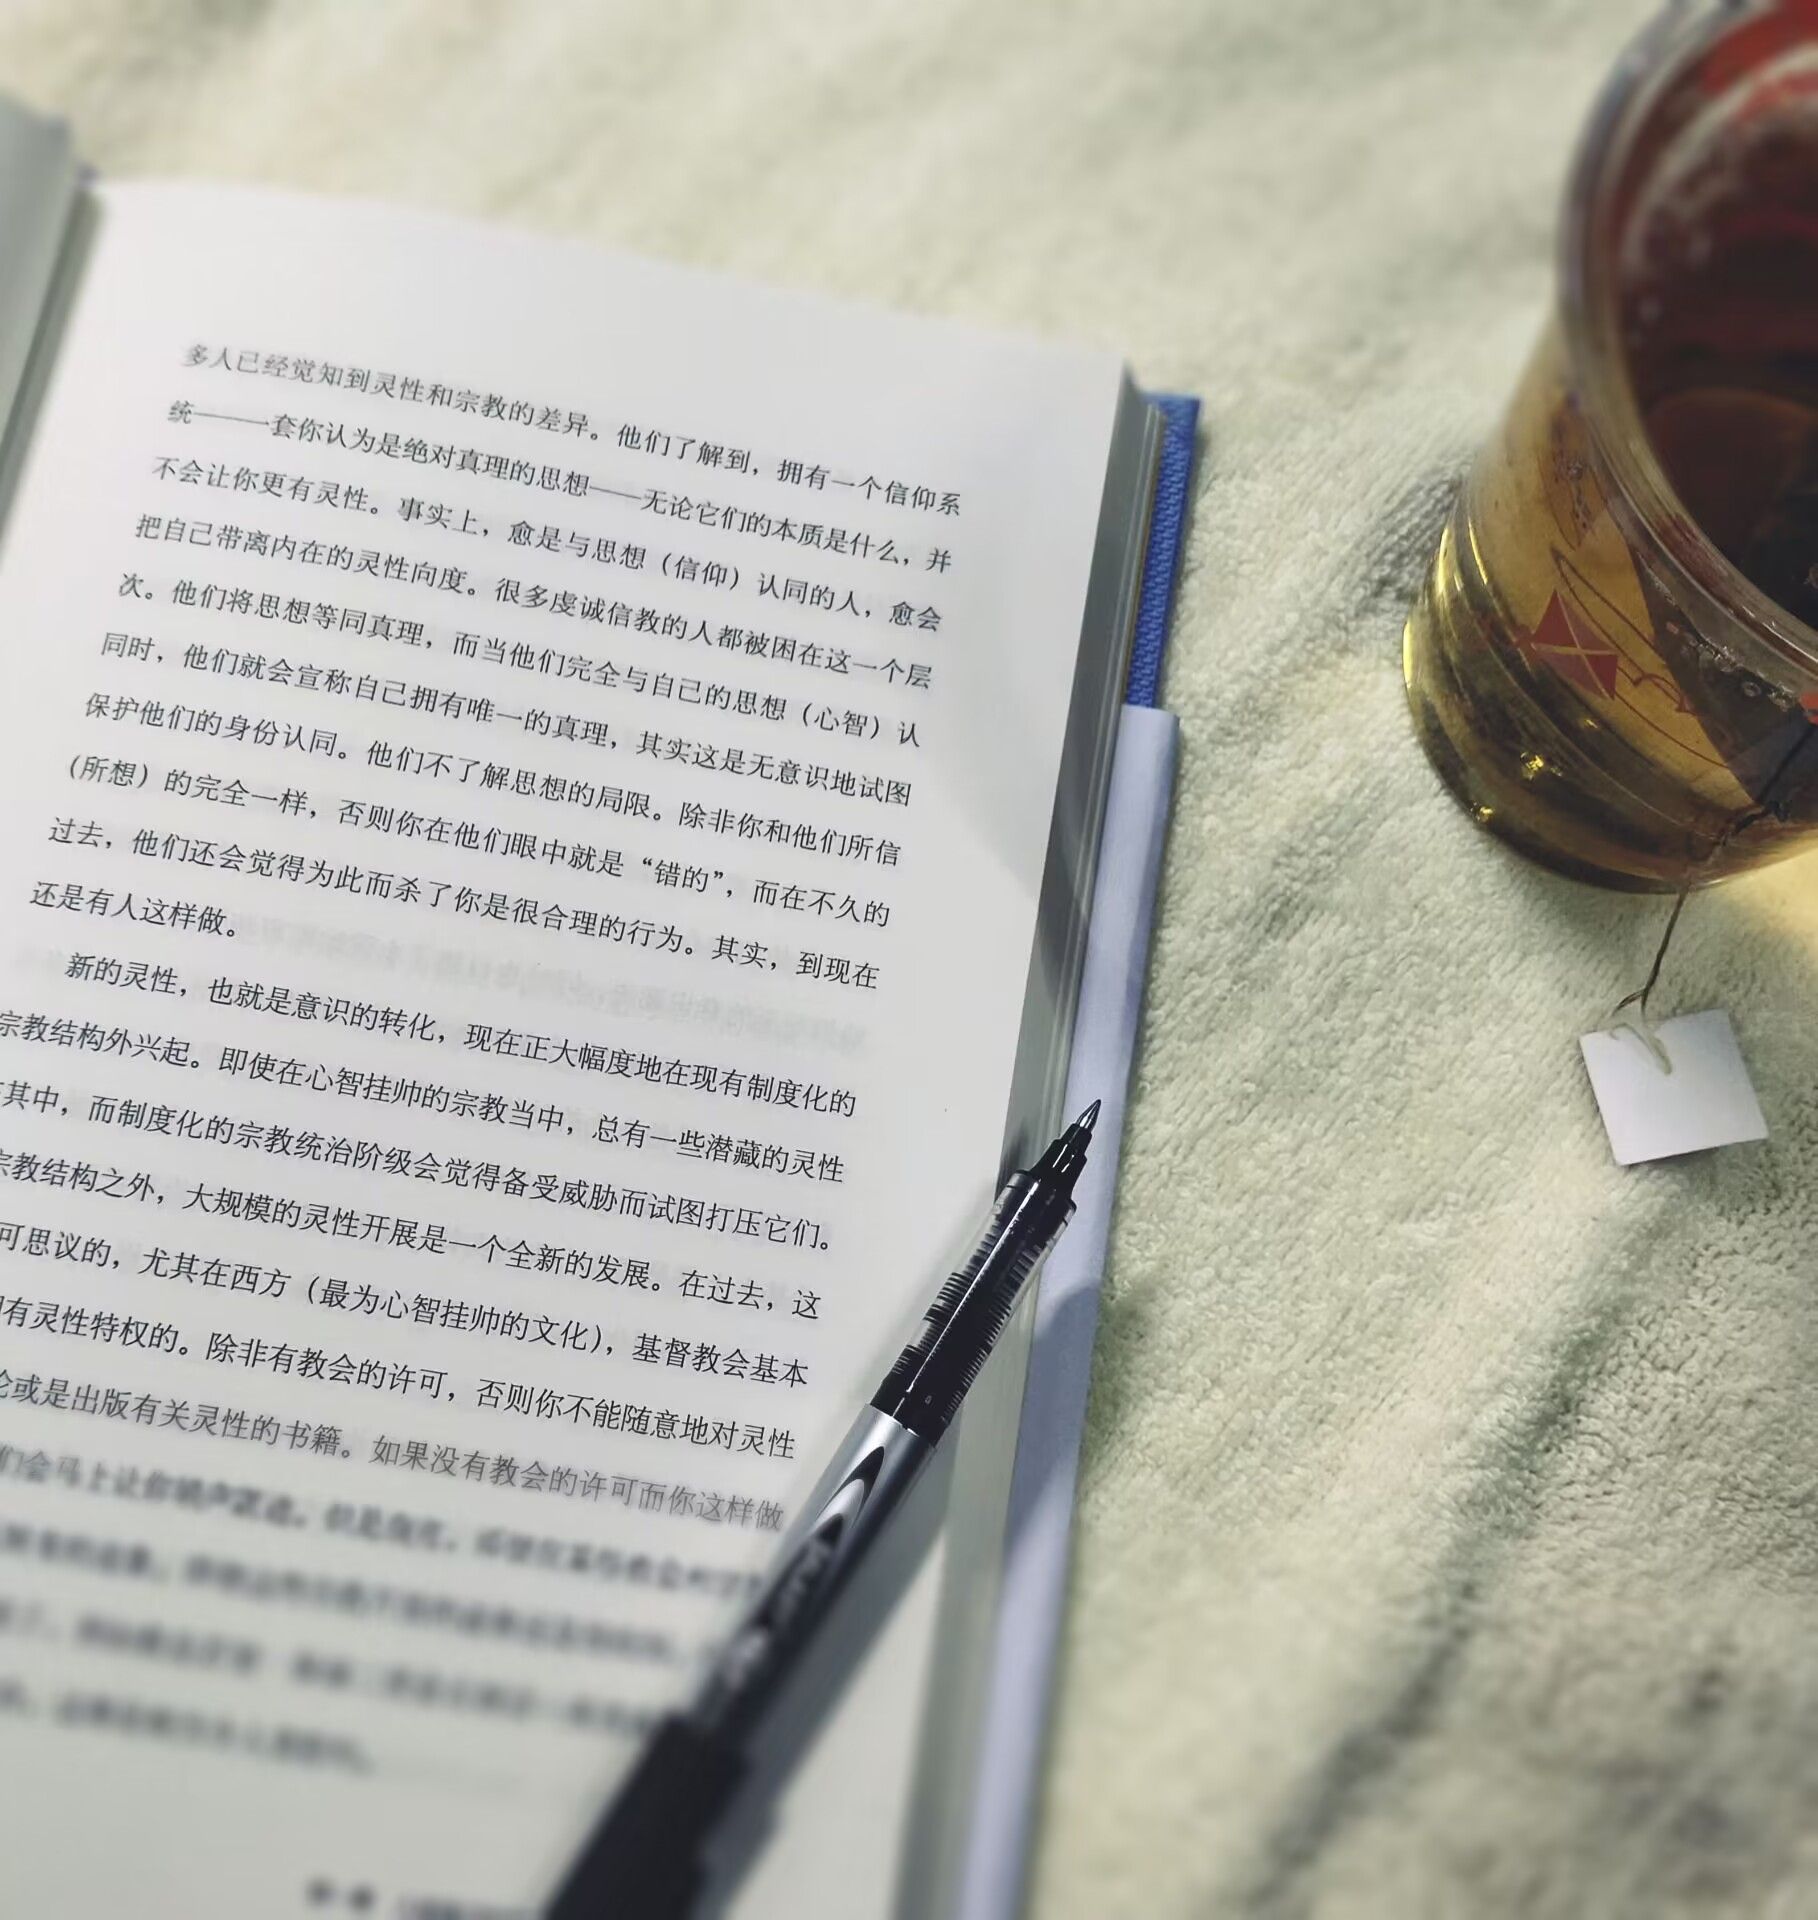 多人已经觉知到灵性和宗教的差异。他们了解到，拥有一个信仰系
统——一套你认为是绝对真理的思想——无论它们的本质是什么，并
不会让你更有灵性。事实上，愈是与思想（信仰）认同的人，愈会
把自己带离内在的灵性向度。很多虔诚信教的人都被困在这一个层
次。他们将思想等同真理，而当他们完全与自己的思想（心智）认
同时，他们就会宣称自己拥有唯一的真理，其实这是无意识地试图
保护他们的身份认同。他们不了解思想的局限。除非你和他们所信
（所想）的完全一样，否则你在他们眼中就是“错的”，而在不久的
过去，他们还会觉得为此而杀了你是很合理的行为。其实，到现在
还是有人这样做。
新的灵性，也就是意识的转化，现在正大幅度地在现有制度化的
宗教结构外兴起。即使在心智挂帅的宗教当中，总有一些潜藏的灵性
其中，而制度化的宗教统治阶级会觉得备受威胁而试图打压它们。
宗教结构之外，大规模的灵性开展是一个全新的发展。在过去，这
可思议的，尤其在西方（最为心智挂帅的文化），基督教会基本
有灵性特权的。除非有教会的许可，否则你不能随意地对灵性
或是出版有关灵性的书籍。如果没有教会的许可而你这样做
们会马上让你销声匿迹。但是现在，